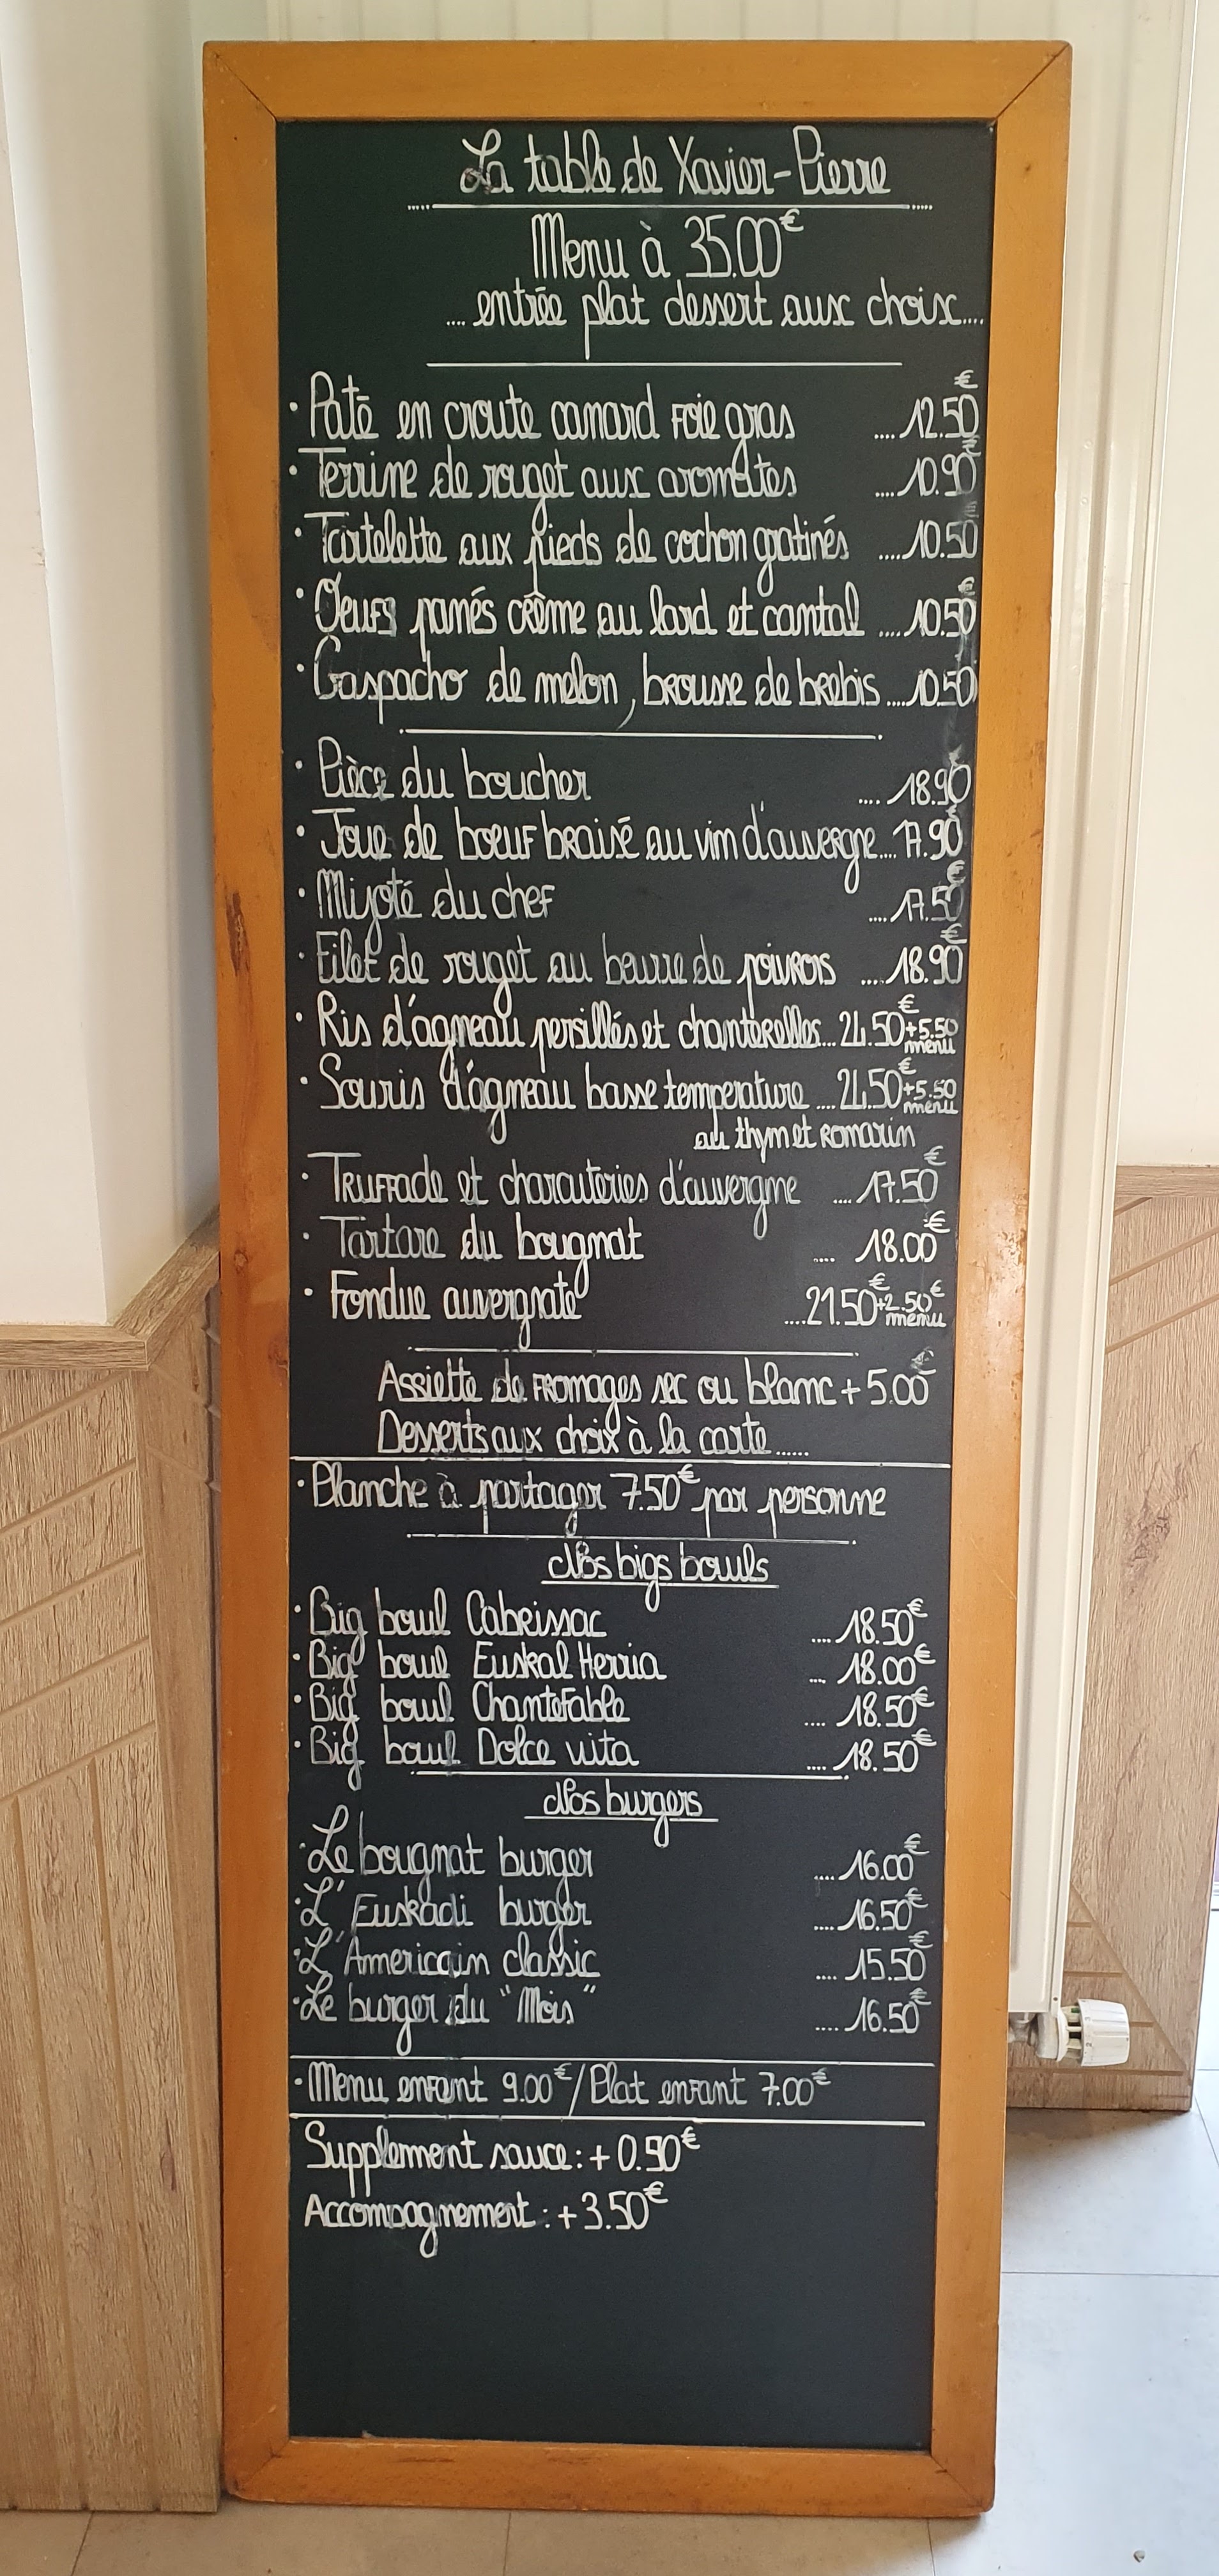 La table de Xavier-Pierre
Menu à 35.00€
.... entrée plat dessert aux choix....
· Paté en croute canard Foie gras .... 12.50€
· Terrine de rouget aux aromates .... 10.90€
· Tartelette aux pieds de cochon gratinés .... 10.50
· Oeufs panés crème au lard et cantal .... 10.50€
· Gaspacho de melon, brousse de brebis .... 10.50
· Pièce du boucher .... 18.90
· Joue de boeuf braisé au vin d'auvergne... 17.90
· Mijoté du chef .... 17.50€
· Filet de rouget au beurre de poivrons .... 18.90€
· Ris d'agneau persillés et chanterelles... 24.50€ +5.50 menu
· Souris d'agneau basse temperature .... 24.50€ +5.50 menu
au thym et romarin
· Truffade et charcuteries d'auvergne .... 17.50€
· Tartare du bougnat .... 18.00€
· Fondue auvergnate ....21.50€ +2.50€ menu
Assiette de fromages sec ou blanc + 5.00€
Desserts aux choix à la carte......
· Planche à partager 7.50€ par personne
Nos bigs bowls
· Big bowl Cabrissac .... 18.50€
· Big bowl Euskal Herria ... 18.00€
· Big bowl Chantefable .... 18.50€
· Big bowl Dolce vita .... 18.50€
Nos burgers
· Le bougnat burger .... 16.00€
· L'Euskadi burger .... 16.50€
· L'Americain classic .... 15.50€
· Le burger du "Mois" .... 16.50€
· Menu enfant 9.00€ / Plat enfant 7.00€
Supplement sauce : + 0.90€
Accompagnement : + 3.50€